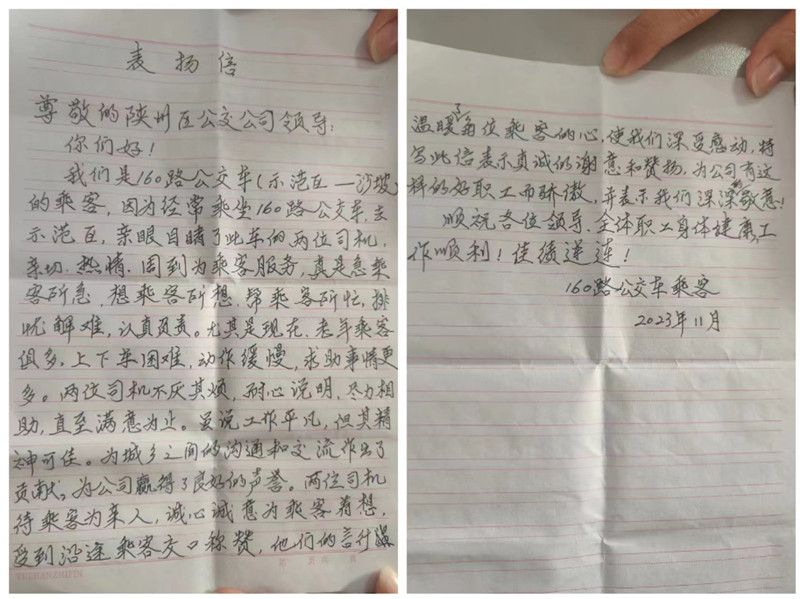 表扬信
尊敬的陕州区公交公司领导:
你们好!
我们是160路公交车(示范区—沙坡)
的乘客,因为经常乘坐160路公交车去
示范区,亲眼目睹了此车的两位司机,
亲切、热情、周到为乘客服务,真是急乘
客所急,想乘客所想,帮乘客所忙,排
忧解难,认真负责。尤其是现在,老年乘客
俱多,上下车困难,动作缓慢,求助事情更
多。两位司机不厌其烦,耐心说明,尽力相
助,直至满意为止。虽说工作平凡,但其精
神可佳。为城乡之间的沟通和交流作出了
贡献,为公司赢得了良好的声誉。两位司机
待乘客为亲人,诚心诚意为乘客着想,
受到沿途乘客交口称赞,他们的言行
温暖了每位乘客的心,使我们深受感动,特
写此信表示真诚的谢意和赞扬,为公司有这
样的好职工而骄傲,并表示我们深深的敬意!
顺祝各位领导、全体职工身体健康,工
作顺利!佳绩逆连!
160路公交车乘客
2023年11月